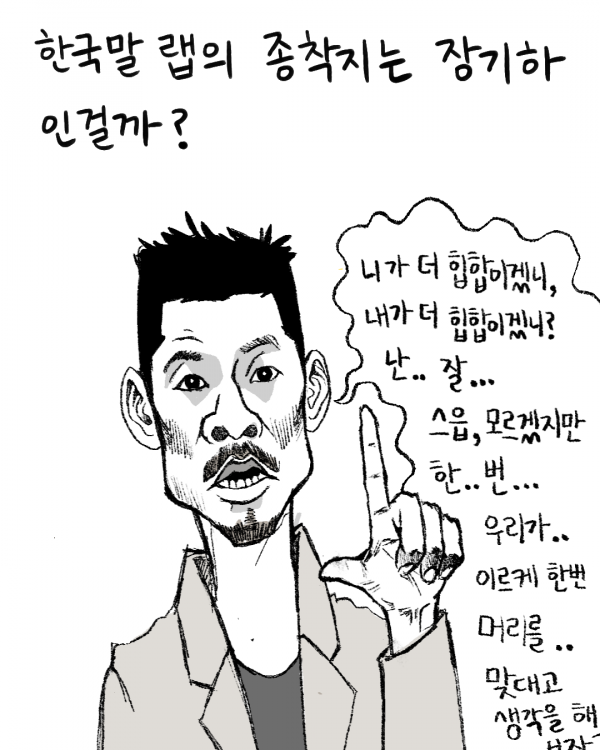 한국말 랩의 종착지는 장기하
인걸까?
니가 더 힙합이겠니,
내가 더 힙합이겠니?
난.. 잘...
스읍, 모르겠지만
한.. 번...
우리가..
이르케 한번
머리를 ..
맞대고
생각을 해